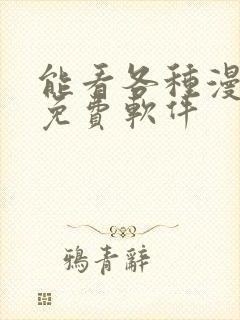 能看各種漫
免費軟件
鴉青辭